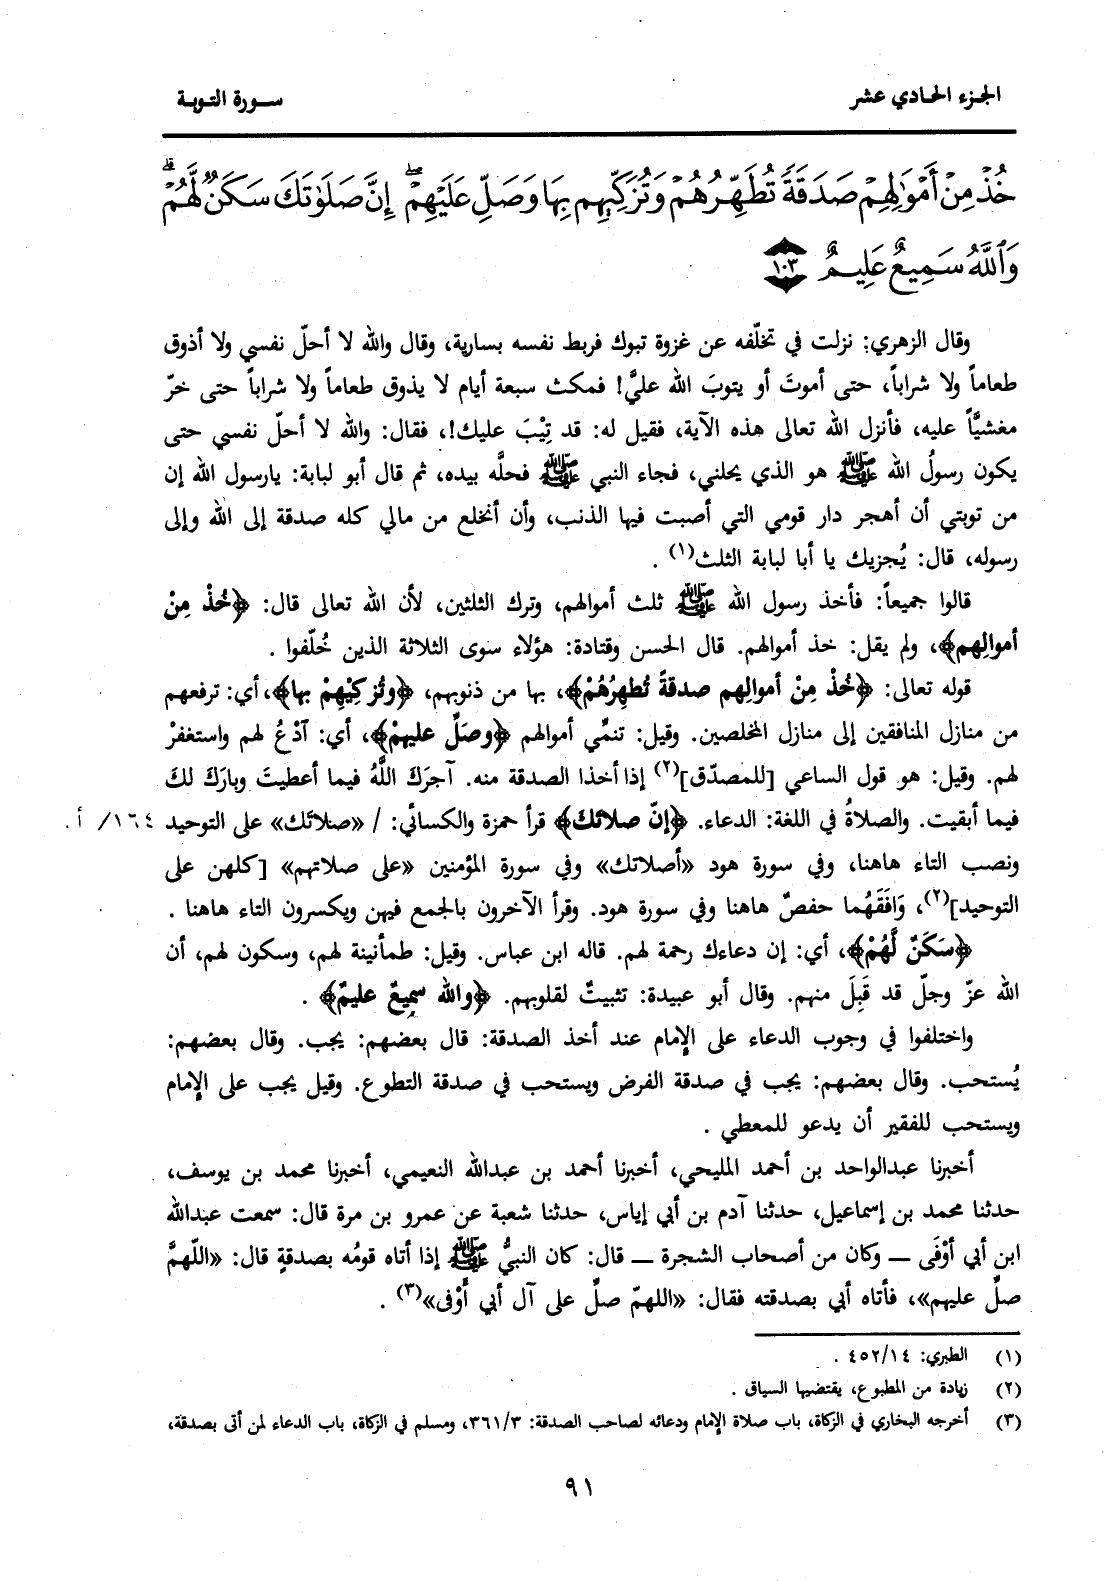 الجزء الحادي عشر
سورة التوبة
خُذْ مِنْ أَمْوَٰلِهِمْ صَدَقَةً تُطَهِّرُهُمْ وَتُزَكِّيهِم بِهَا وَصَلِّ عَلَيْهِمْ ۖ إِنَّ صَلَوٰتَكَ سَكَنٌ لَّهُمْ ۗ
وَٱللَّهُ سَمِيعٌ عَلِيمٌ ١٠٣
وقال الزهري: نزلت في تخلّفه عن غزوة تبوك فربط نفسه بسارية، وقال والله لا أحلّ نفسي ولا أذوق
طعاماً ولا شراباً، حتى أموتَ أو يتوبَ الله عليَّ! فمكث سبعة أيام لا يذوق طعاماً ولا شراباً حتى خرّ
مغشيًّا عليه، فأنزل الله تعالى هذه الآية، فقيل له: قد تِيْبَ عليك!، فقال: والله لا أحلّ نفسي حتى
يكون رسولُ الله ﷺ هو الذي يحلني، فجاء النبي ﷺ فحلَّه بيده، ثم قال أبو لبابة: يارسول الله إن
من توبتي أن أهجر دار قومي التي أصبت فيها الذنب، وأن أنخلع من مالي كله صدقة إلى الله وإلى
رسوله، قال: يُجزيك يا أبا لبابة الثلث(١) .
قالوا جميعاً: فأخذ رسول الله ﷺ ثلث أموالهم، وترك الثلثين، لأن الله تعالى قال: ﴿خُذْ مِنْ
أموالِهم﴾، ولم يقل: خذ أموالهم. قال الحسن وقتادة: هؤلاء سوى الثلاثة الذين خُلّفوا .
قوله تعالى: ﴿خُذْ مِنْ أموالِهم صدقةً تُطهِرُهُمْ﴾، بها من ذنوبهم، ﴿وتُزكِيْهِمْ بها﴾، أي: ترفعهم
من منازل المنافقين إلى منازل المخلصين. وقيل: تنمِّي أموالهم ﴿وصَلِّ عليهمْ﴾، أي: آدْعُ لهم واستغفرْ
لهم. وقيل: هو قول الساعي [للمصدّق](٢) إذا أخذا الصدقة منه. آجرَكَ اللَّهُ فيما أعطيتَ وبارَكَ لكَ
فيما أبقيت. والصلاةُ في اللغة: الدعاء. ﴿إنّ صلاتك﴾ قرأ حمزة والكسائي: / «صلاتَك» على التوحيد ١٦٤/ أ.
ونصب التاء هاهنا، وفي سورة هود «أصلاتك» وفي سورة المؤمنين «على صلاتهم» [كلهن على
التوحيد](٢)، وَافَقَهُما حفصٌ هاهنا وفي سورة هود. وقرأ الآخرون بالجمع فيهن ويكسرون التاء هاهنا .
﴿سَكَنٌ لَّهُمْ﴾، أي: إن دعاءك رحمة لهم. قاله ابن عباس. وقيل: طمأنينة لهم، وسكون لهم، أن
الله عزّ وجلّ قد قَبِلَ منهم. وقال أبو عبيدة: تثبيتٌ لقلوبهم. ﴿والله سميعٌ عليمٌ﴾ .
واختلفوا في وجوب الدعاء على الإمام عند أخذ الصدقة: قال بعضهم: يجب. وقال بعضهم:
يُستحب. وقال بعضهم: يجب في صدقة الفرض ويستحب في صدقة التطوع. وقيل يجب على الإمام
ويستحب للفقير أن يدعو للمعطي .
أخبرنا عبدالواحد بن أحمد المليحي، أخبرنا أحمد بن عبدالله النعيمي، أخبرنا محمد بن يوسف،
حدثنا محمد بن إسماعيل، حدثنا آدم بن أبي إياس، حدثنا شعبة عن عمرو بن مرة قال: سمعت عبدالله
ابن أبي أوْفَى ــ وكان من أصحاب الشجرة ــ قال: كان النبيُّ ﷺ إذا أتاه قومُه بصدقةٍ قال: «اللهمَّ
صلِّ عليهم»، فأتاه أبي بصدقته فقال: «اللهمّ صلِّ على آل أبي أَوْفى»(٣) .
(١) الطبري: ٤٥٢/١٤ .
(٢) زيادة من المطبوع، يقتضيها السياق .
(٣) أخرجه البخاري في الزكاة، باب صلاة الإمام ودعائه لصاحب الصدقة: ٣٦١/٣، ومسلم في الزكاة، باب الدعاء لمن أتى بصدقة،
٩١